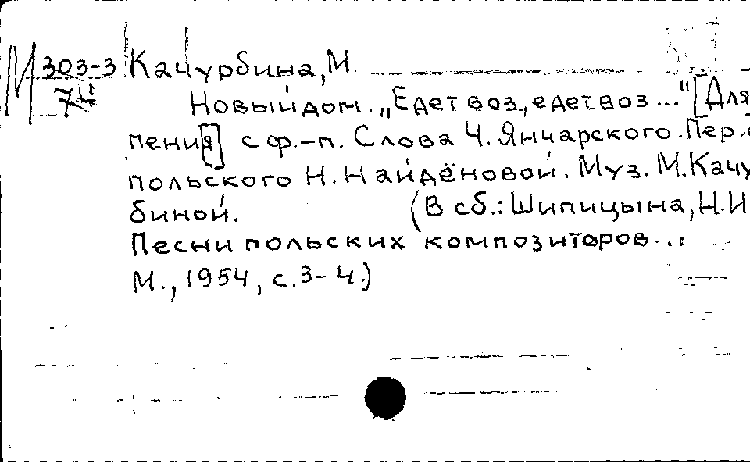 М 303-3 Качурбина, М.
74 Новый дом. „Едет воз, едет воз..." [Для
пения] с ф.-п. Слова Ч. Янчарского. Пер. с
польского Н. Найдёновой. Муз. М. Качу
биной. (В сб.: Шипицына, Н.И
Песни польских композиторов...
М., 1954, с. 3-4.)